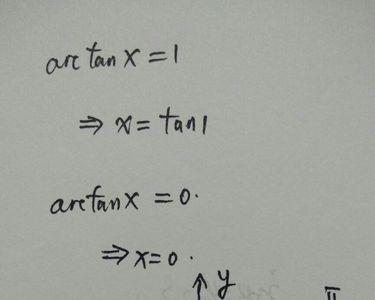 arctan x = 1
⇒ x = tan1
arctan x = 0.
⇒ x = 0.
y
π